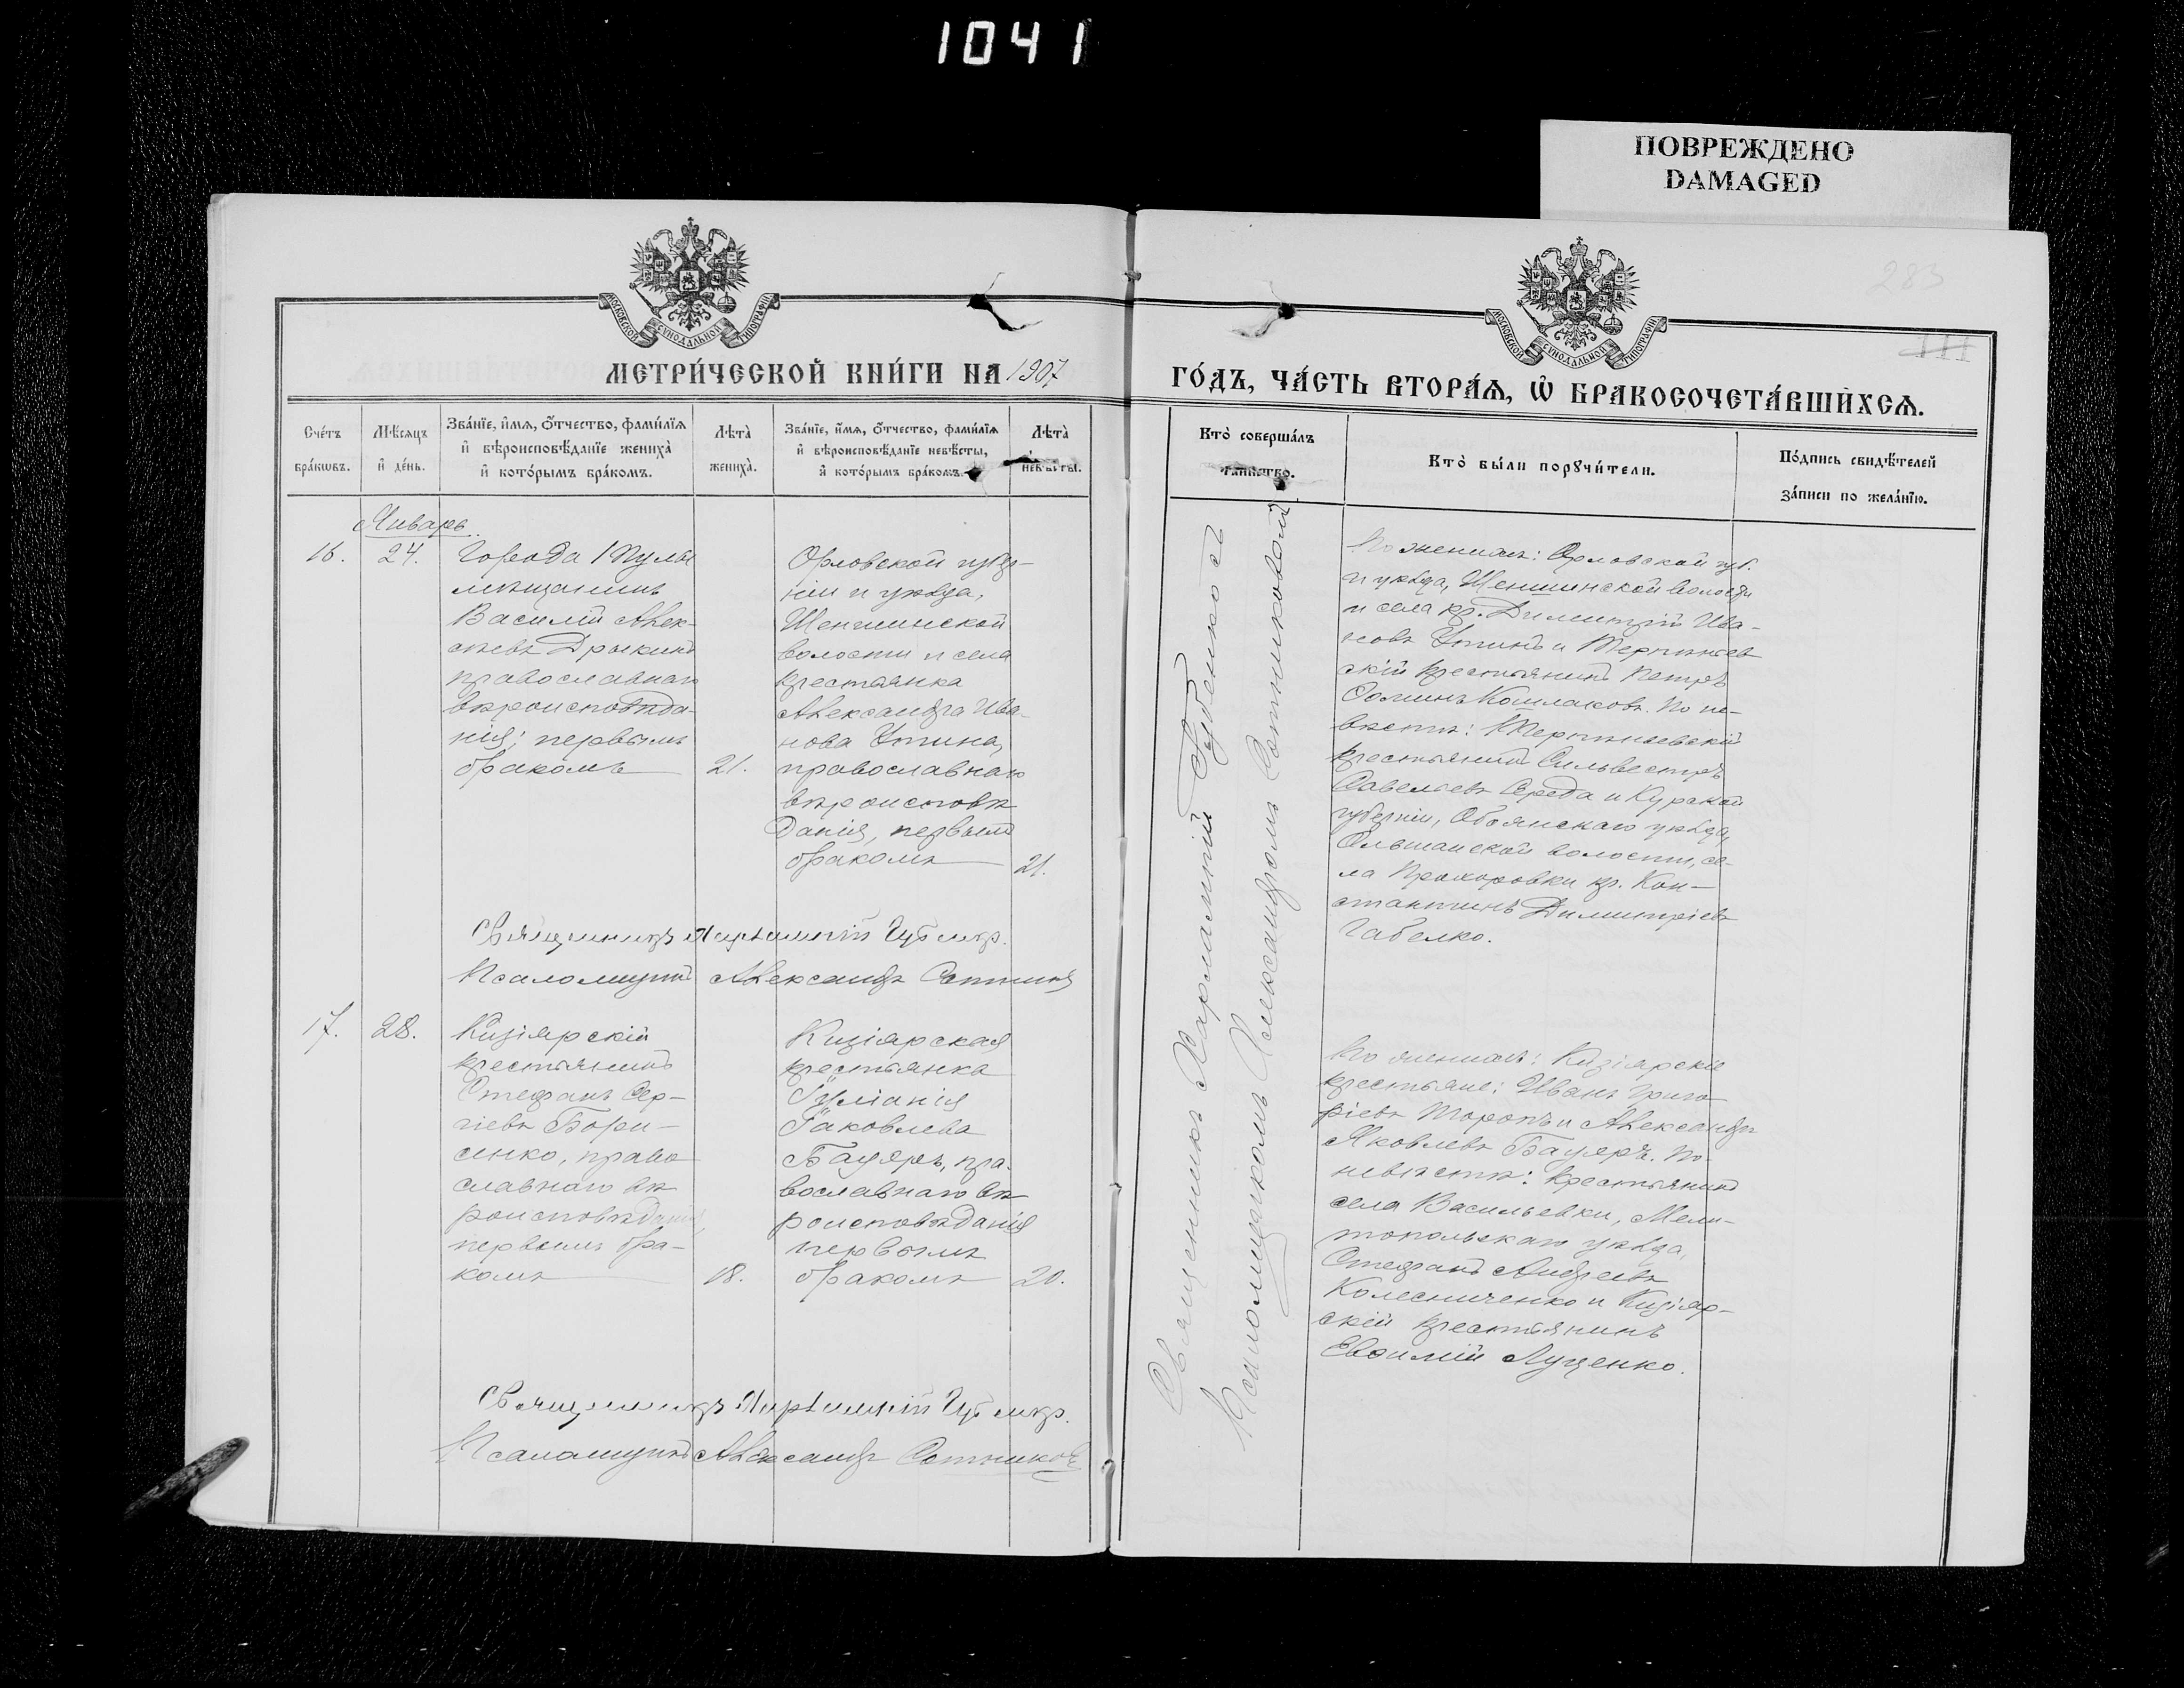 1041
ПОВРЕЖДЕНО
DAMAGED
283
III
МОСКОВСКОЙ СУНОДАЛЬНОЙ ТИПОГРАФІИ
МОСКОВСКОЙ СУНОДАЛЬНОЙ ТИПОГРАФІИ
МЕТРИ́ЧЕСКОЙ КНИ́ГИ НА 1907
ГО́ДЪ, ЧА́СТЬ ВТОРА́Ѧ, Ѡ҆ БРАКОСОЧЕТА́ВШИХСѦ.
Сче́тъ
бра́кѡвъ.
Мѣ́сѧцъ
и҆ де́нь.
Зва́нїе, и҆́мѧ, ѻ҆́тчество, фами́лїѧ
и҆ вѣроисповѣ́данїе жениха̀
и҆ кото́рымъ бра́комъ.
Лѣта̀
жениха̀.
Зва́нїе, и҆́мѧ, ѻ҆́тчество, фами́лїѧ
и҆ вѣроисповѣ́данїе невѣ́сты,
и҆ кото́рымъ бра́комъ.
Лѣта̀
невѣ́сты.
Кто̀ соверша́лъ
та́инство.
Кто̀ бы́ли порꙋчи́тели.
По́дпись свидѣ́телей
за́писи по жела́нїю.
Январь.
16.
24.
Города Тулы
мѣщанинъ
Василій Алек-
сѣевъ Дрыкинъ
православнаго
вѣроисповѣда-
нія; первымъ
бракомъ
21.
Орловской губер-
ніи и уѣзда,
Шеншинской
волости и села
крестьянка
Александра Ива-
нова Утина,
православнаго
вѣроисповѣ
данія, первымъ
бракомъ
21.
Священникъ Харлампій Губенко съ
Псаломщикомъ Александромъ Сотниковымъ
По женихѣ: Орловской губ.
и уѣзда, Шеншинской волости
и села кр. Димитрій Ива-
новъ Утинъ и Терпѣніев
скій крестьянинъ Петръ
Ѳоминъ Колпаковъ. По не-
вѣстѣ: Терпѣніевскій
крестьянинъ Сильвестръ
Савельевъ Середа и Курской
губерніи, Обоянскаго уѣзда,
Ольшанской волости, се-
ла Прохоровки кр. Кон-
стантинъ Димитріевъ
Габелко.
Священникъ Харлампій Губенко.
Псаломщикъ Александръ Сотников
17.
28.
Кизіярскій
крестьянинъ
Стефанъ Сер-
гіевъ Бори-
сенко, право
славнаго вѣ
роисповѣданія,
первымъ бра-
комъ
18.
Кизіярская
крестьянка
Іуліанія
Іаковлева
Бауяръ, пра-
вославнаго вѣ
роисповѣданія
первымъ
бракомъ
20.
По женихѣ: Кизіярскіе
крестьяне: Иванъ Григо
ріевъ Моропъ и Александръ
Яковлевъ Бауяръ. По
невѣстѣ: крестьянинъ
села Васильевки, Мели-
топольскаго уѣзда,
Стефанъ Андреевъ
Колесниченко и Кизіяр-
скій крестьянинъ
Евѳимій Луценко.
Священникъ Харлампій Губенко.
Псаломщикъ Александръ Сотниковъ